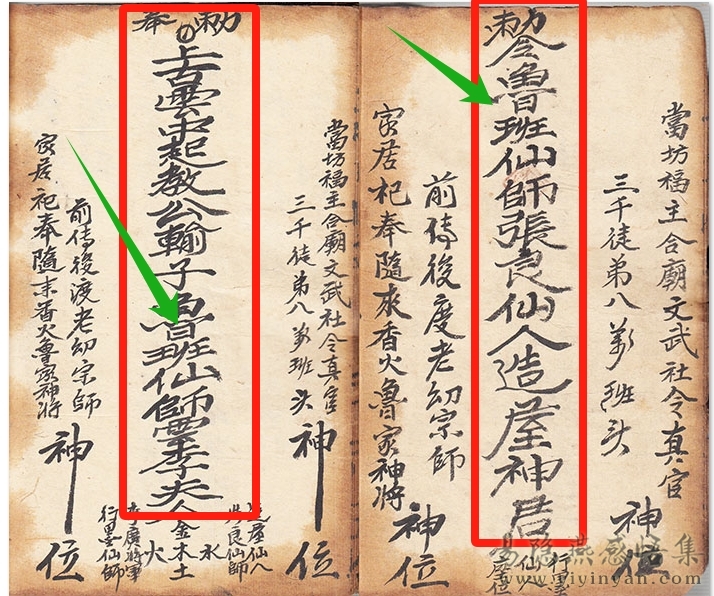 當坊福主合廟文武社令真官
三千徒弟八萬班头
神位
敕令魯班仙師張良仙人造神
行墨仙人
前傳後度老幼宗師
家居祀奉隨來香火魯家神將
神位
當坊福主合廟文武社令真官
三千徒弟八萬班头
神位
仙人
良仙師
奉敕
上古雲中起教公輸子魯班仙師李夫人
金木水火土
行墨仙師
前傳後渡老幼宗師
家居祀奉隨來香火魯家神將
神位
易隐燕感悟集
www.yiyinyan.com